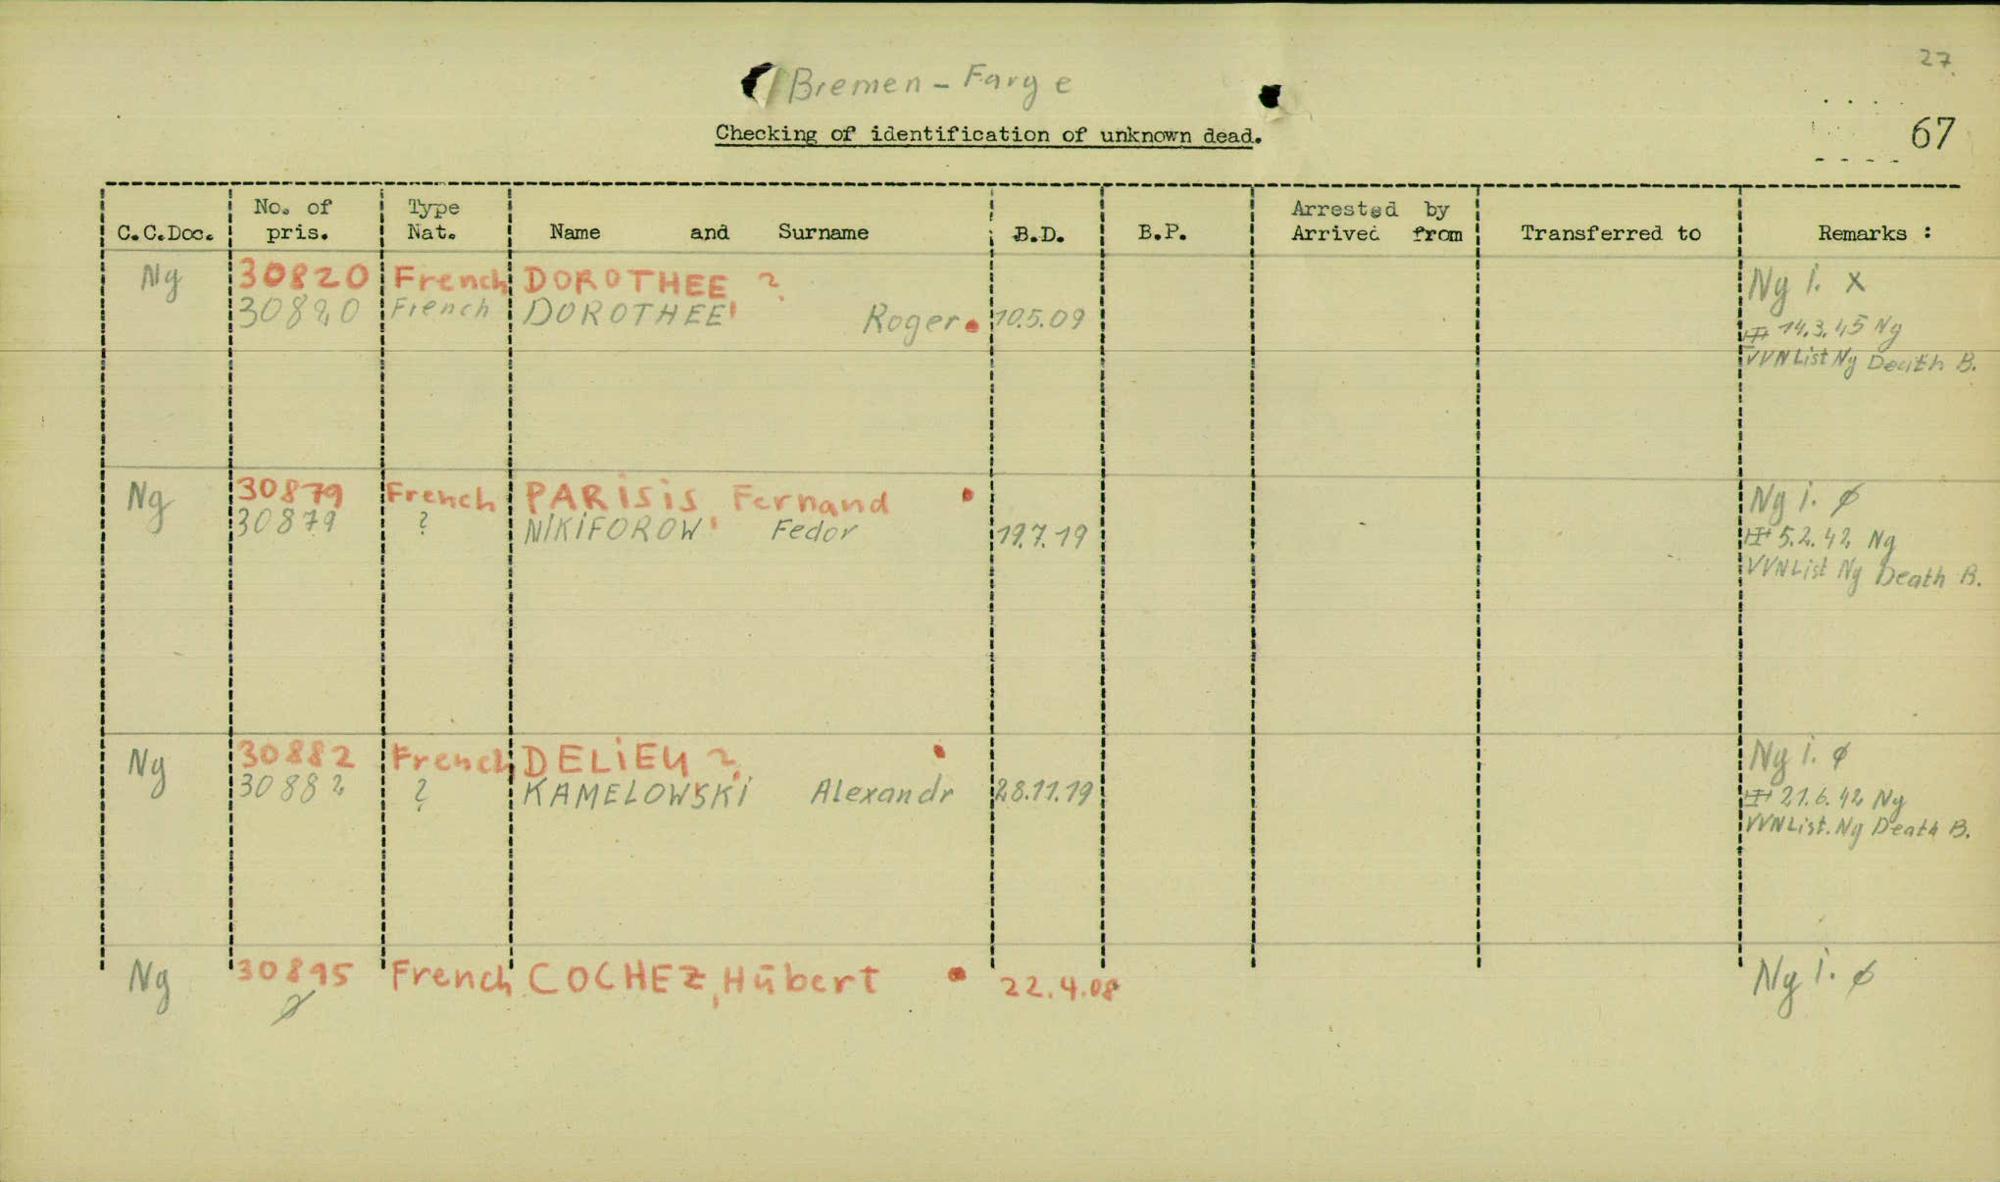 27.
Bremen - Farge
Checking of identification of unknown dead.
67
C.C.Doc. No. of pris. Type Nat. Name and Surname B.D. B.P. Arrested by Arrived from Transferred to Remarks :
Ng 30820 French DOROTHEE ? Ng i. x
30820 French DOROTHEE Roger. 10.5.09 14.3.45 Ng
VVN List Ng Death B.
Ng 30879 French PARISIS, Fernand Ng i. ø
30879 ? NIKIFOROW Fedor 19.7.19 5.2.42 Ng
VVN List Ng Death B.
Ng 30882 French DELIEU ? Ng i. ø
30882 ? KAMELOWSKI Alexandr 28.11.19 21.6.42 Ng
VVN List. Ng Death B.
Ng 30895 French COCHEZ, Hübert 22.4.08 Ng i. ø
ø